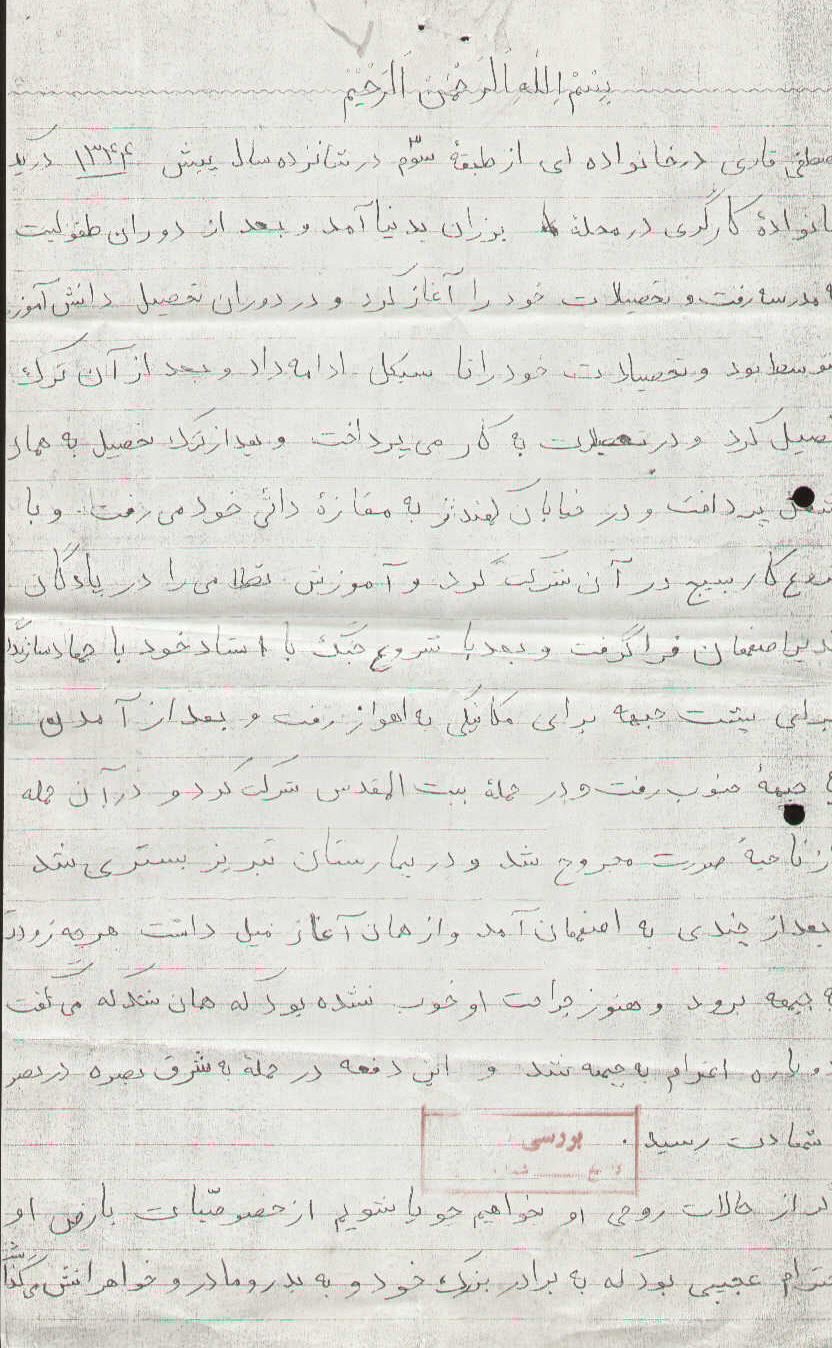 بِسْمِ اللهِ الرَّحْمنِ الرَّحیْمْ
مصطفی قاری در خانواده ای از طبقهٔ سوّم در شانزده سال پیش ۱۳۴۴ در یک
خانوادهٔ کارگری در محلهٔ بزران بدنیا آمد و بعد از دوران طفولیت
به مدرسه رفت و تحصیلات خود را آغاز کرد و در دوران تحصیل دانش آموز
متوسط بود و تحصیلات خود را تا سیکل ادامه داد و بعد از آن ترک
تحصیل کرد و در تعطیلات به کار می پرداخت و بعد از ترک تحصیل به همان
شغل پرداخت و در خیابان کهندژ به مغازهٔ دائی خود می رفت. و با
شروع کار بسیج در آن شرکت کرد و آموزش نظامی را در پادگان
اصفهان فرا گرفت و بعد با شروع جنگ با استاد خود با جهاد سازندگی
برای پشت جبهه برای مکانیکی به اهواز رفت و بعد از آمدن
جبههٔ جنوب رفت و در حملهٔ بیت المقدس شرکت کرد و در آن حمله
از ناحیهٔ صورت مجروح شد و در بیمارستان تبریز بستری شد
بعد از چندی به اصفهان آمد و از همان آغاز میل داشت هر چه زودتر
به جبهه برود و هنوز جراحت او خوب نشده بود که همان شد که می گفت
دوباره اعزام به جبهه شد و این دفعه در حملهٔ به شرق بصره در بصره
شهادت رسید.
بررسی
از حالات روحی او بخواهیم جویا شویم از خصوصّیات بارض او
احترام عجیبی بود که به برادر بزرگ خود و به پدر و مادر و خواهرانش می گذاشت